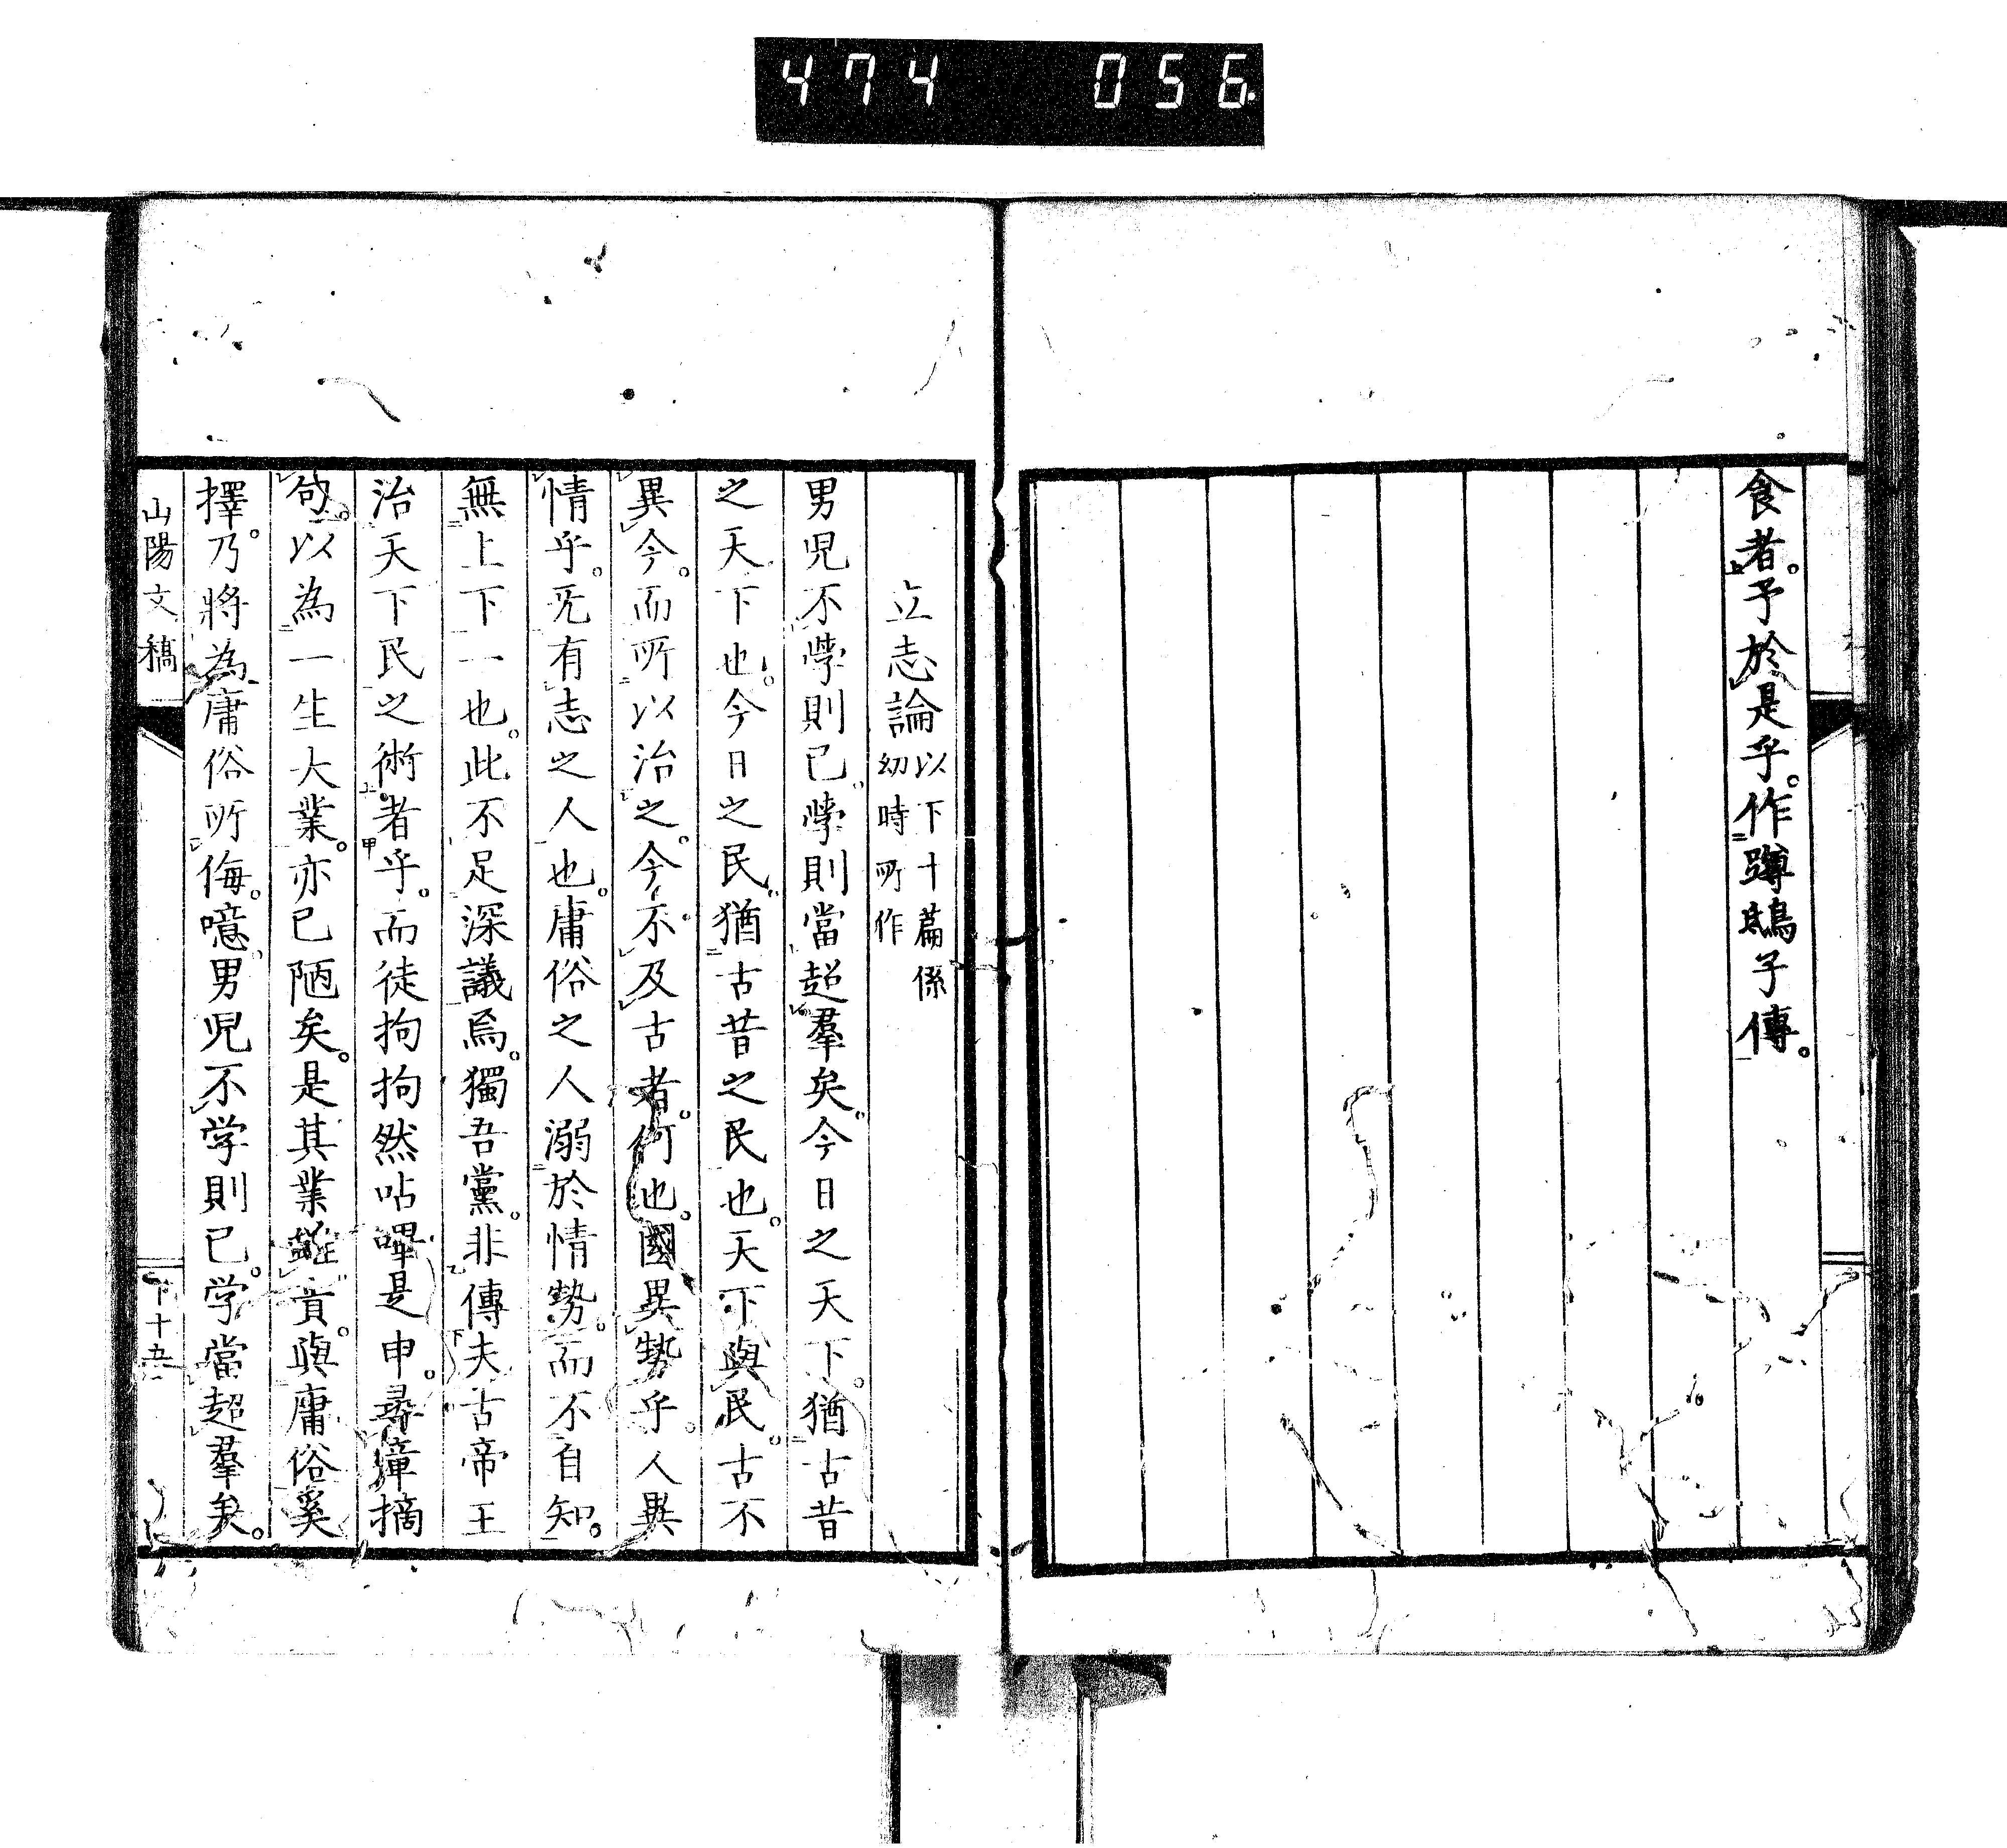 474 056
食者。予於是乎。作蹲鴟子傳。
立志論 以下十篇係
幼時所作
男児不學則已。學則當超羣矣。今日之天下。猶古昔
之天下也。今日之民。猶古昔之民也。天下與民。古不
異今。而所以治之。今不及古者。何也。國異勢乎。人異
情乎。无有志之人也。庸俗之人溺於情勢。而不自知。
無上下一也。此不足深議焉。獨吾黨。非傳夫古帝王
治天下民之術者乎。而徒拘拘然呫嗶是申。尋章摘
句。以為一生大業。亦已陋矣。是其業雖貴。與庸俗奚
擇。乃將為庸俗所侮。噫。男児不学則已。学當超羣矣。
山陽文稿
下十五